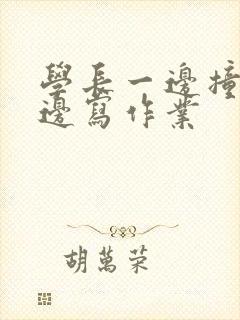 學長一邊撞
邊寫作業
胡萬荣